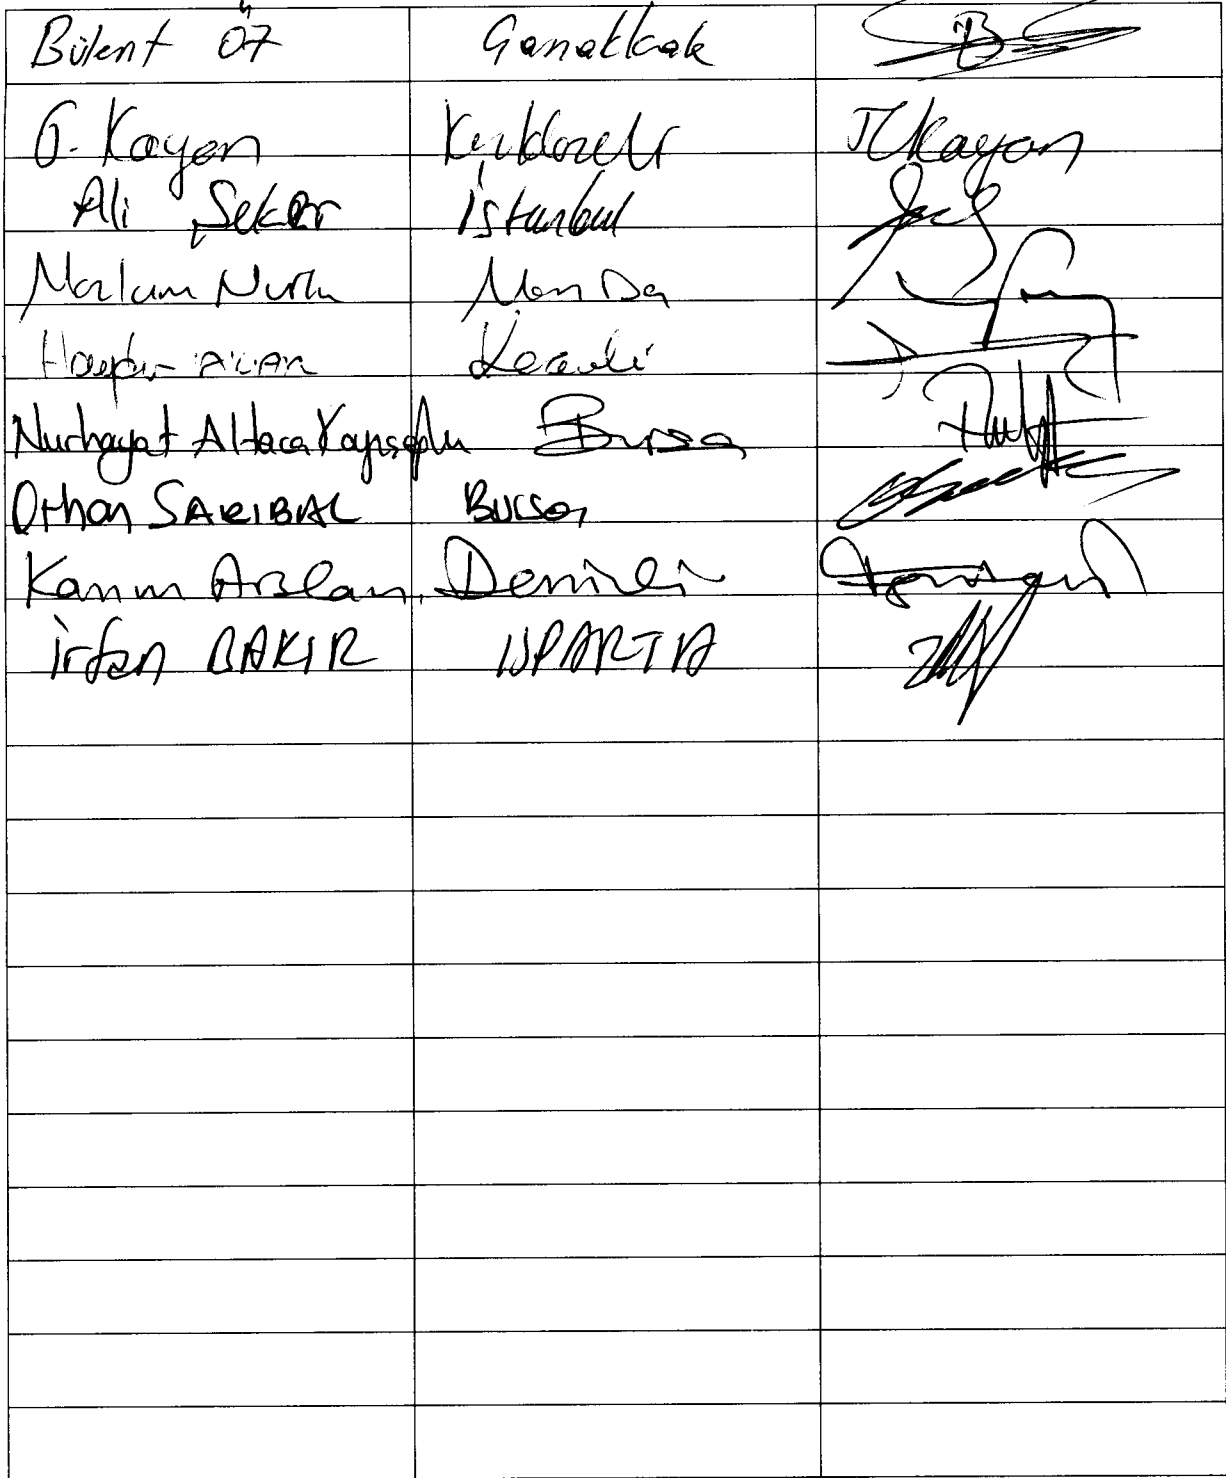 Bülent Öz Çanakkale
T. Kayan Kırklareli TÜKayan
Ali Şeker İstanbul
Mazlum Nurlu Manisa
Haydar AKAR Kocaeli
Nurhayat Altaca Kayışoğlu Bursa
Orhan SARIBAL Bursa
Kazım Arslan, Denizli
İrfan BAKIR ISPARTA